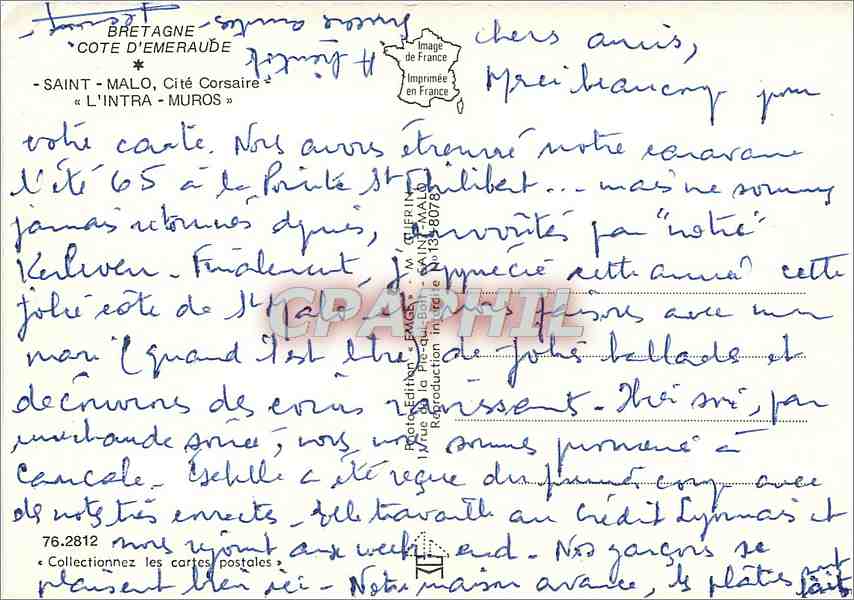 BRETAGNE
COTE D'EMERAUDE
*
- SAINT - MALO, Cité Corsaire -
« L'INTRA - MUROS »
Image
de France
Imprimée
en France
chers amis,
Merci beaucoup pour
votre carte. Nous avons étrenné notre caravane
l'été 65 à la Pointe St Philibert... mais ne sommes
jamais retournés depuis, envoûtés par "notre"
Kerliven - Finalement, j'apprécie cette année cette
jolie côte de St Malo et nous faisons avec mon
mari (quand il est libre) de jolies ballades et
découvrons des coins ravissants - Hier soir, par
chaude soirée, nous nous sommes promené à
Cancale. Estelle a été reçue du premier coup avec
de notes très correctes - Elle travaille au Crédit Lyonnais et
nous rejoint aux week-end - Nos garçons se
plaisent bien ici - Notre maison avance, les plâtres sont faits
A bientôt
sincères amitiés -
Photo-Edition « EMGE » - M. GUERIN
11, rue de la Pie-qui-Boit - SAINT-MALO
Reproduction interdite N° 135-80783
CPAPHIL
76.2812
« Collectionnez les cartes postales »